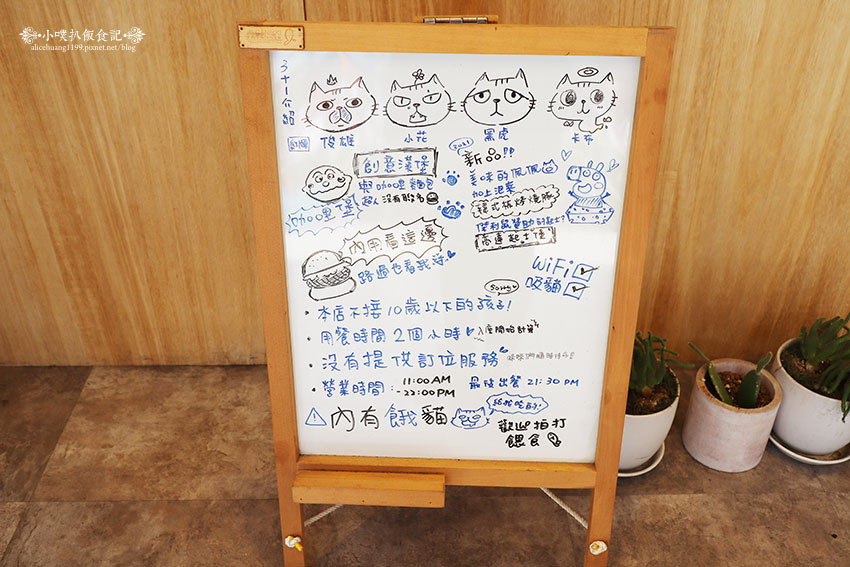 小噗趴飯食記
alicehuang1199.pixnet.net/blog
3+1介紹
俊雄
小花
黑虎
卡布
創意漢堡
與咖哩麵包
超人沒有聯名
咖哩堡
2021
新品!!
美味的佩佩
加上泡菜
韓式豬烤燒肉
傑利鼠贊助的起士?
喬逼起士堡
內用看這邊
路過也看我呀
WiFi
吸貓
sorry
本店不接10歲以下的孩子!
用餐時間2個小時
入座開始計算
沒有提供訂位服務
營業時間:11:00AM
-22:00PM
最後出餐21:30PM
內有餓貓
給我吃的!
歡迎拍打
餵食